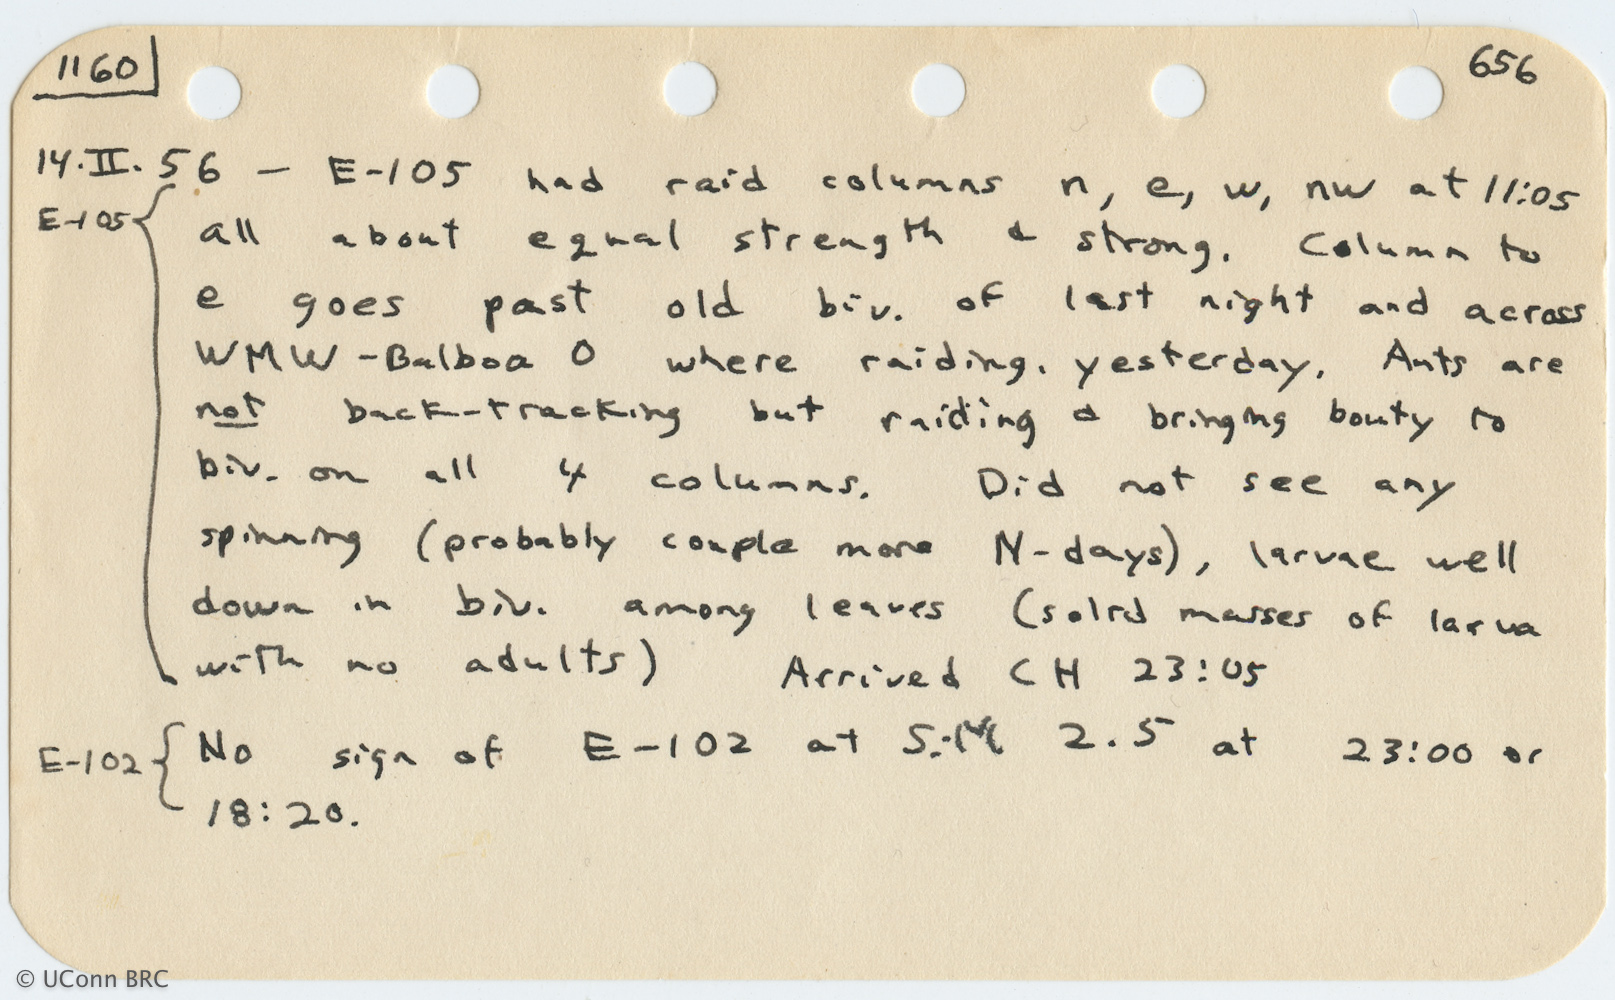 1160
656
14.II.56 — E-105 had raid columns n, e, w, nw at 11:05
E-105
all about equal strength & strong. Column to
e goes past old biv. of last night and across
WMW-Balboa 0 where raiding. yesterday. Ants are
not back-tracking but raiding & bringing bouty to
biv. on all 4 columns. Did not see any
spinning (probably couple more N-days), larvae well
down in biv. among leaves (solid masses of larva
with no adults) Arrived CH 23:05
E-102
No sign of E-102 at 2.5 at 23:00 or
18:20.
© UConn BRC